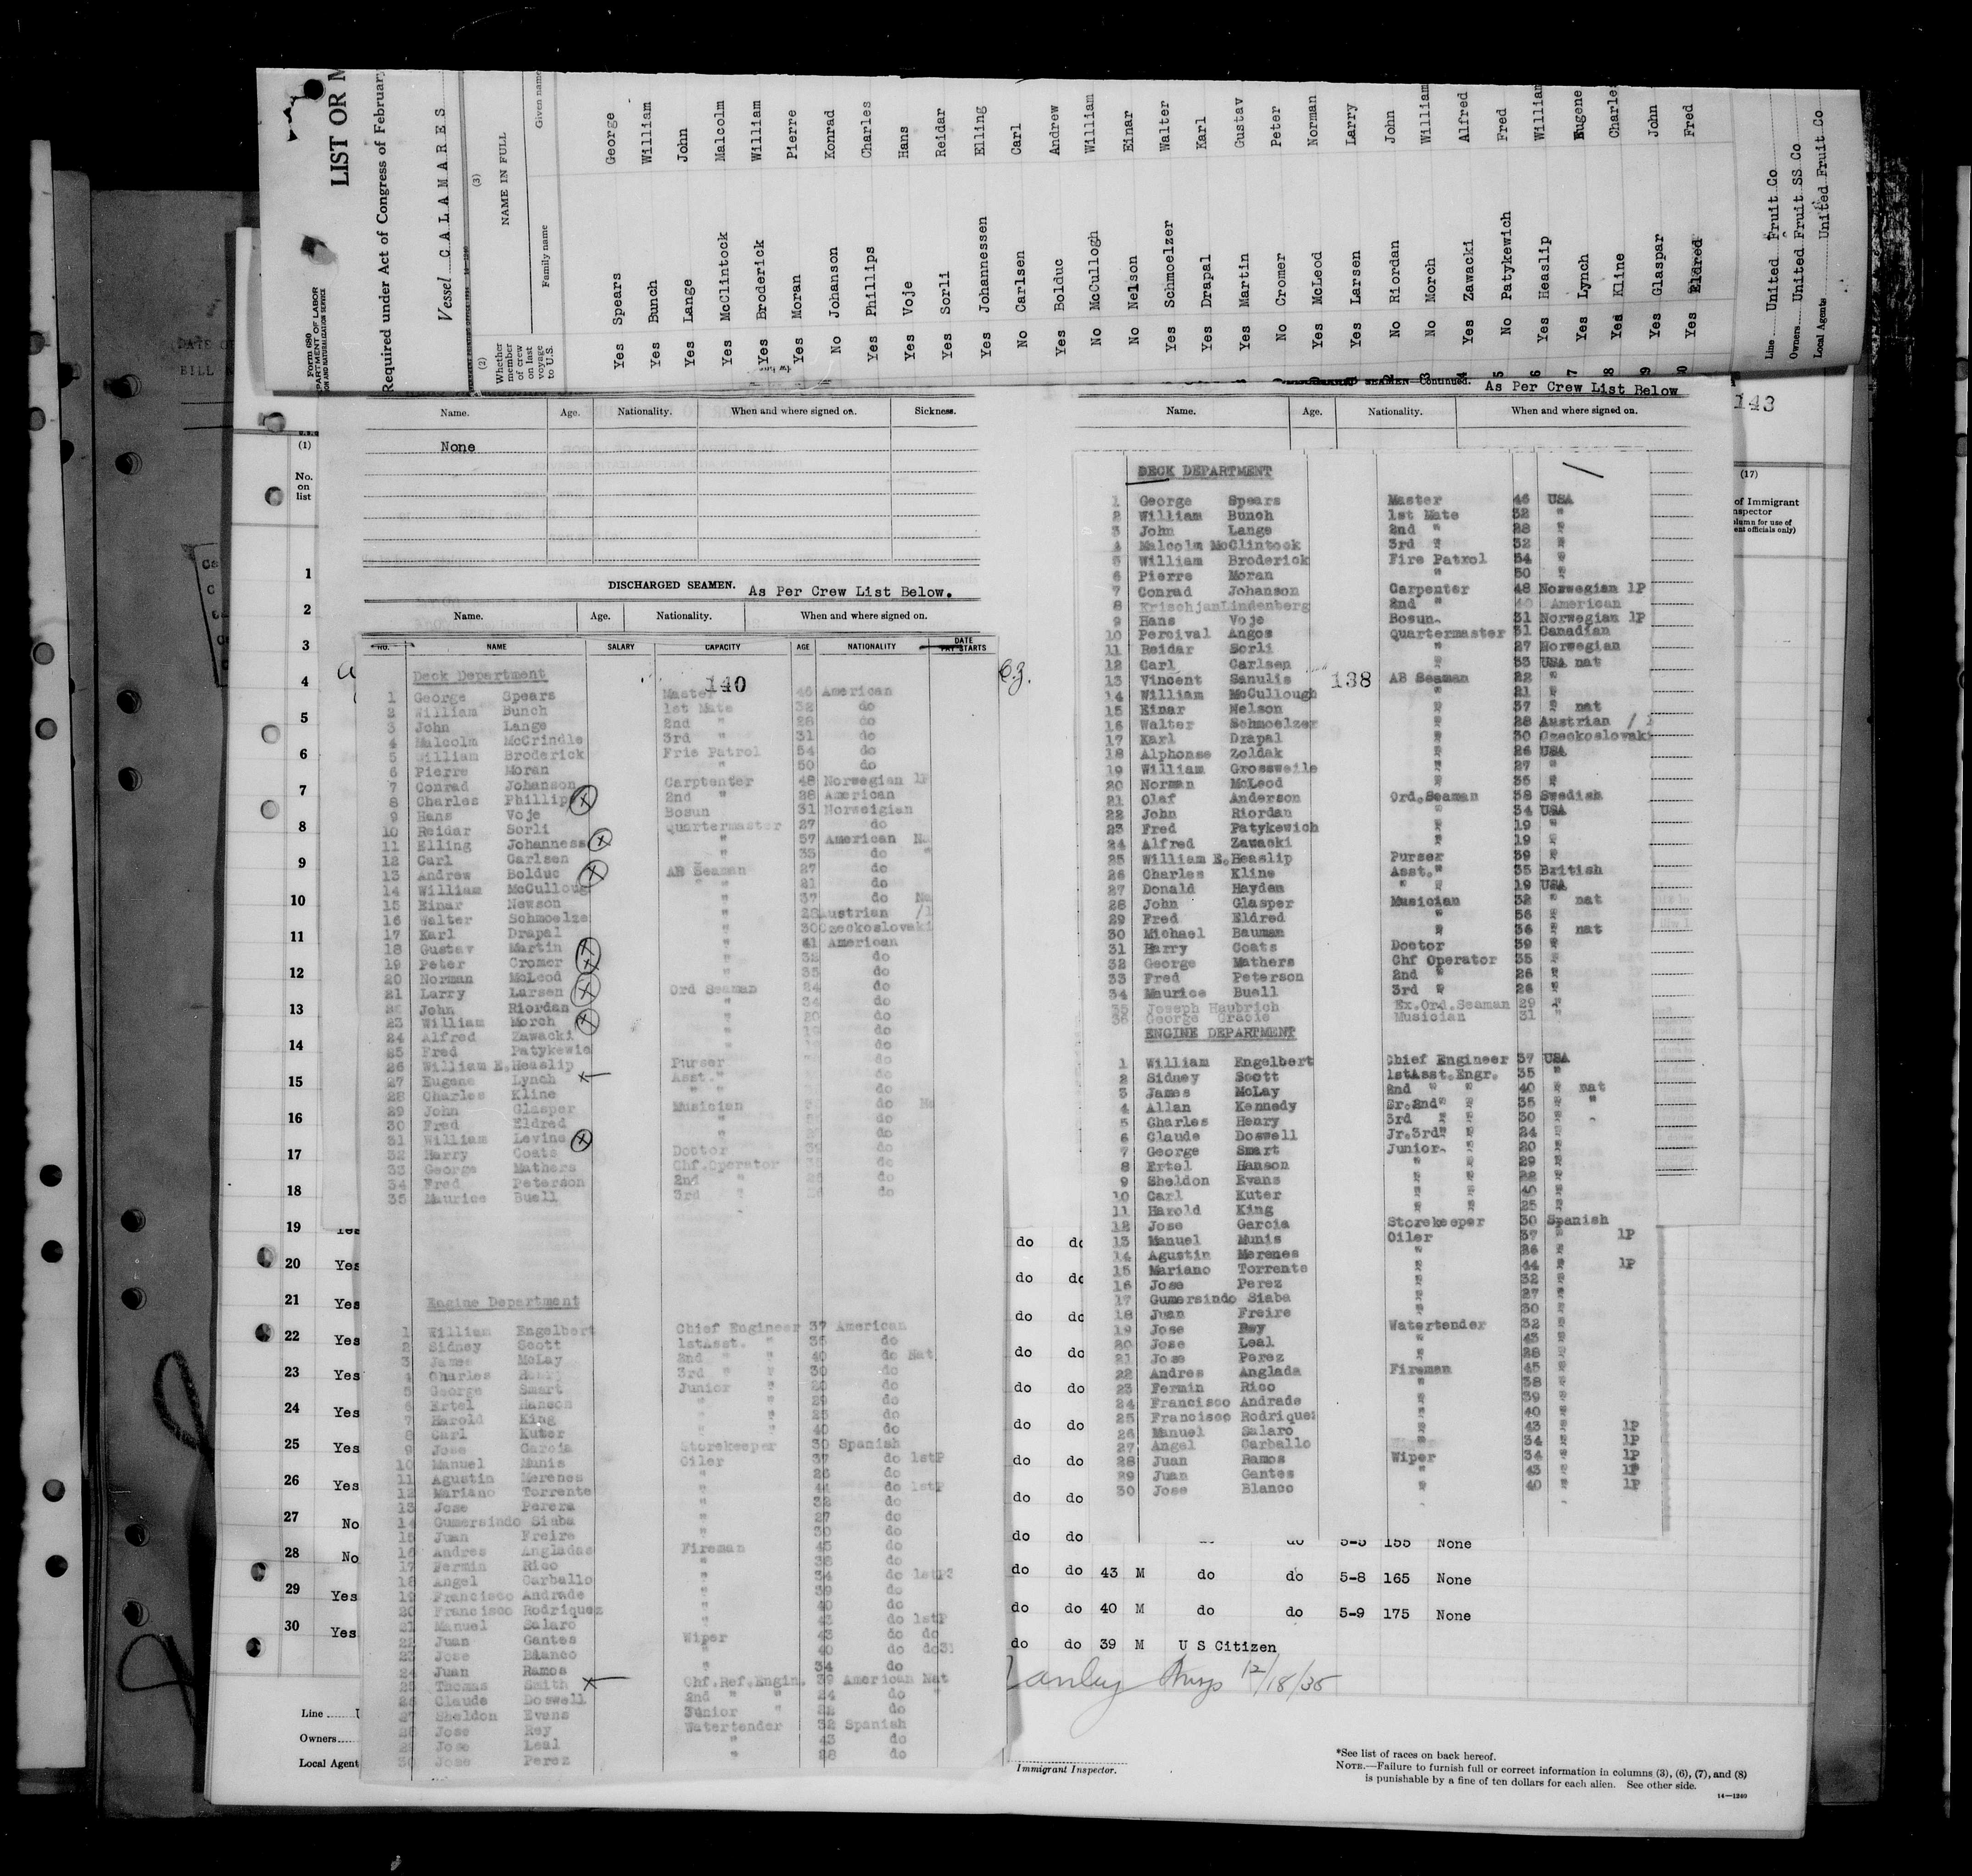 Form 686
LIST OR M
Required under Act of Congress of February
Vessel CALAMARES
(2) (3)
Whether member of crew on last voyage to U.S.
NAME IN FULL
Family name Given name
Yes Spears George
Yes Bunch William
Yes Lange John
Yes McClintock Malcolm
Yes Broderick William
Yes Moran Pierre
No Johanson Konrad
Yes Phillips Charles
Yes Voje Hans
Yes Sorli Reidar
Yes Johannessen Elling
No Carlsen Carl
Yes Bolduc Andrew
No McCullogh William
No Nelson Einar
Yes Schmoelzer Walter
Yes Drapal Karl
Yes Martin Gustav
No Cromer Peter
Yes McLeod Norman
Yes Larsen Larry
No Riordan John
No Morch William
Yes Zawacki Alfred
No Patykewich Fred
Yes Heaslip William
Yes Lynch Eugene
Yes Kline Charles
Yes Glaspar John
Yes Eldred Fred
Line United Fruit Co
Owners United Fruit SS Co
Local Agents United Fruit Co
Name. Age. Nationality. When and where signed on. Sickness.
None
DISCHARGED SEAMEN. As Per Crew List Below.
Name. Age. Nationality. When and where signed on.
NO. NAME SALARY CAPACITY AGE NATIONALITY DATE PAY STARTS
140
Deck Department
1 George Spears Master 46 American
2 William Bunch 1st Mate 32 do
3 John Lange 2nd " 28 do
4 Malcolm McCrindle 3rd " 31 do
5 William Broderick Fris Patrol 54 do
6 Pierre Moran " 50 do
7 Conrad Johanson Carptenter 48 Norwegian 1P
8 Charles Phillip 2nd " 28 American
9 Hans Voje Bosun 31 Norweigian
10 Reidar Sorli Quartermaster 27 do
11 Elling Johanness " 57 American Na
12 Carl Carlsen " 35 do "
13 Andrew Bolduc AB Seaman 27 do
14 William McCulloug " 21 do
15 Einar Newson " 37 do Na
16 Walter Schmoelze " 28 Austrian /1
17 Karl Drapal " 30 Czeckoslovaki
18 Gustav Martin " 41 American
19 Peter Cromer " 32 do
20 Norman McLeod " 35 do
21 Larry Larsen Ord Seaman 24 do
John Riordan " 34 do
23 William Morch " 20 do
24 Alfred Zawacki " 19 do
25 Fred Patykewic " do
26 William E. Heaslip Purser do
27 Eugene Lynch Asst. " do
28 Charles Kline " " do
29 John Glasper Musician do
30 Fred Eldred " do
31 William Levine " do
32 Harry Coats Doctor 39 do
33 George Mathers Chf.Operator do
34 Fred Peterson 2nd " 26 do
35 Maurice Buell 3rd " do
Engine Department
1 William Engelbert Chief Engineer 37 American
2 Sidney Scott 1stAsst. " 35 do
3 James McLay 2nd " " 40 do Nat
4 Charles Henry 3rd " " 30 do
5 George Smart Junior " 20 do
6 Ertel Hanson " " 29 do
7 Harold King " " 25 do
8 Carl Kuter " " 40 do
9 Jose Garcia Storekeeper 30 Spanish
10 Manuel Munis Oiler 37 do 1stP
11 Agustin Merenes " 26 do
12 Mariano Torrente " 44 do 1stP
13 Jose Perera " 32 do
14 Gumersindo Siaba " 27 do
15 Juan Freire " 30 do
16 Andres Angladas Fireman 45 do
17 Fermin Rico " 38 do
18 Angel Carballo " 34 do
19 Francisco Andrade " 39 do
20 Francisco Rodriquez " 40 do
21 Manuel Salaro " 43 do 1stP
22 Juan Gantes Wiper 43 do do
23 Jose Blanco " 40 do
24 Juan Ramos " 34 do
25 Thomas Smith Chf.Ref.Engin. 39 American Nat
26 Claude Doswell 2nd " " 24 do "
27 Sheldon Evans Junior " 22 do
28 Jose Rey Watertender 32 Spanish
29 Jose Leal " 43 do
30 Jose Perez " 28 do
SEAMEN—Continued. As Per Crew List Below
Name. Age. Nationality. When and where signed on.
143
138
DECK DEPARTMENT
1 George Spears Master 46 USA
2 William Bunch 1st Mate 32 "
3 John Lange 2nd " 28 "
4 Malcolm McClintock 3rd " 32 "
5 William Broderick Fire Patrol 54 "
6 Pierre Moran " 50 "
7 Conrad Johanson Carpenter 48 Norwegian 1P
8 Krischjan Lindenberg 2nd " 40 American
9 Hans Voje Bosun 31 Norwegian 1P
10 Percival Angos Quartermaster 31 Canadian
11 Reidar Sorli " 27 Norwegian
12 Carl Carlsen " 53 USA nat
13 Vincent Sanulis AB Seaman 22 "
14 William McCullough " 21 "
15 Einar Nelson " 37 " nat
16 Walter Schmoelzer " 28 Austrian / 1
17 Karl Drapal " 30 Czeckoslovaki
18 Alphonse Zoldak " 26 USA
19 William Grossweile " 27 "
20 Norman McLeod " 35 "
21 Olaf Anderson Ord.Seaman 38 Swedish
22 John Riordan " 34 USA
23 Fred Patykewich " 19 "
24 Alfred Zawacki " 19 "
25 William E.Heaslip Purser 39 "
26 Charles Kline Asst." 35 British
27 Donald Hayden " " 19 USA
28 John Glasper Musician 32 " nat
29 Fred Eldred " 56 "
30 Michael Bauman " 36 " nat
31 Harry Coats Doctor 39 "
32 George Mathers Chf Operator 35 "
33 Fred Peterson 2nd " 26 "
34 Maurice Buell 3rd " 26 "
35 Joseph Haubrich Ex.Ord.Seaman 29 "
36 George Cracie Musician 31 "
ENGINE DEPARTMENT
1 William Engelbert Chief Engineer 37 USA
2 Sidney Scott 1stAsst.Engr. 35 "
3 James McLay 2nd " " 40 " nat
4 Allan Kennedy Sr.2nd" " 35 " "
5 Charles Henry 3rd " " 30 "
6 Claude Doswell Jr.3rd" " 24 "
7 George Smart Junior " 20 "
8 Ertel Hanson " " 29 "
9 Sheldon Evans " " 22 "
10 Carl Kuter " " 40 "
11 Harold King " " 25 "
12 Jose Garcia Storekeeper 30 Spanish
13 Manuel Munis Oiler 37 " 1P
14 Agustin Merenes " 26 "
15 Mariano Torrente " 44 " 1P
16 Jose Perez " 32 "
17 Gumersindo Siaba " 27 "
18 Juan Freire " 30 "
19 Jose Rey Watertender 32 "
20 Jose Leal " 43 "
21 Jose Perez " 28 "
22 Andres Anglada Fireman 45 "
23 Fermin Rico " 38 "
24 Francisco Andrade " 39 "
25 Francisco Rodriquez " 40 "
26 Manuel Salaro " 43 " 1P
27 Angel Carballo " 34 " 1P
28 Juan Ramos Wiper 34 " 1P
29 Juan Gantes " 43 " 1P
30 Jose Blanco " 40 " 1P
(17)
of Immigrant
nspector
(1)
No. on list
1
2
3
4
5
6
7
8
9
10
11
12
13
14
15
16
17
18
19 Yes
20 Yes do do
21 Yes do do
22 Yes do do
23 Yes do do
24 Yes do do
25 Yes do do
26 Yes do do
27 No do do 5-5 155 None
28 No do do 43 M do do 5-8 165 None
29 Yes do do 40 M do do 5-9 175 None
30 Yes do do 39 M U S Citizen
12/18/35
Line
Owners
Local Agent
Immigrant Inspector.
*See list of races on back hereof.
NOTE.—Failure to furnish full or correct information in columns (3), (6), (7), and (8)
is punishable by a fine of ten dollars for each alien. See other side.
14—1240